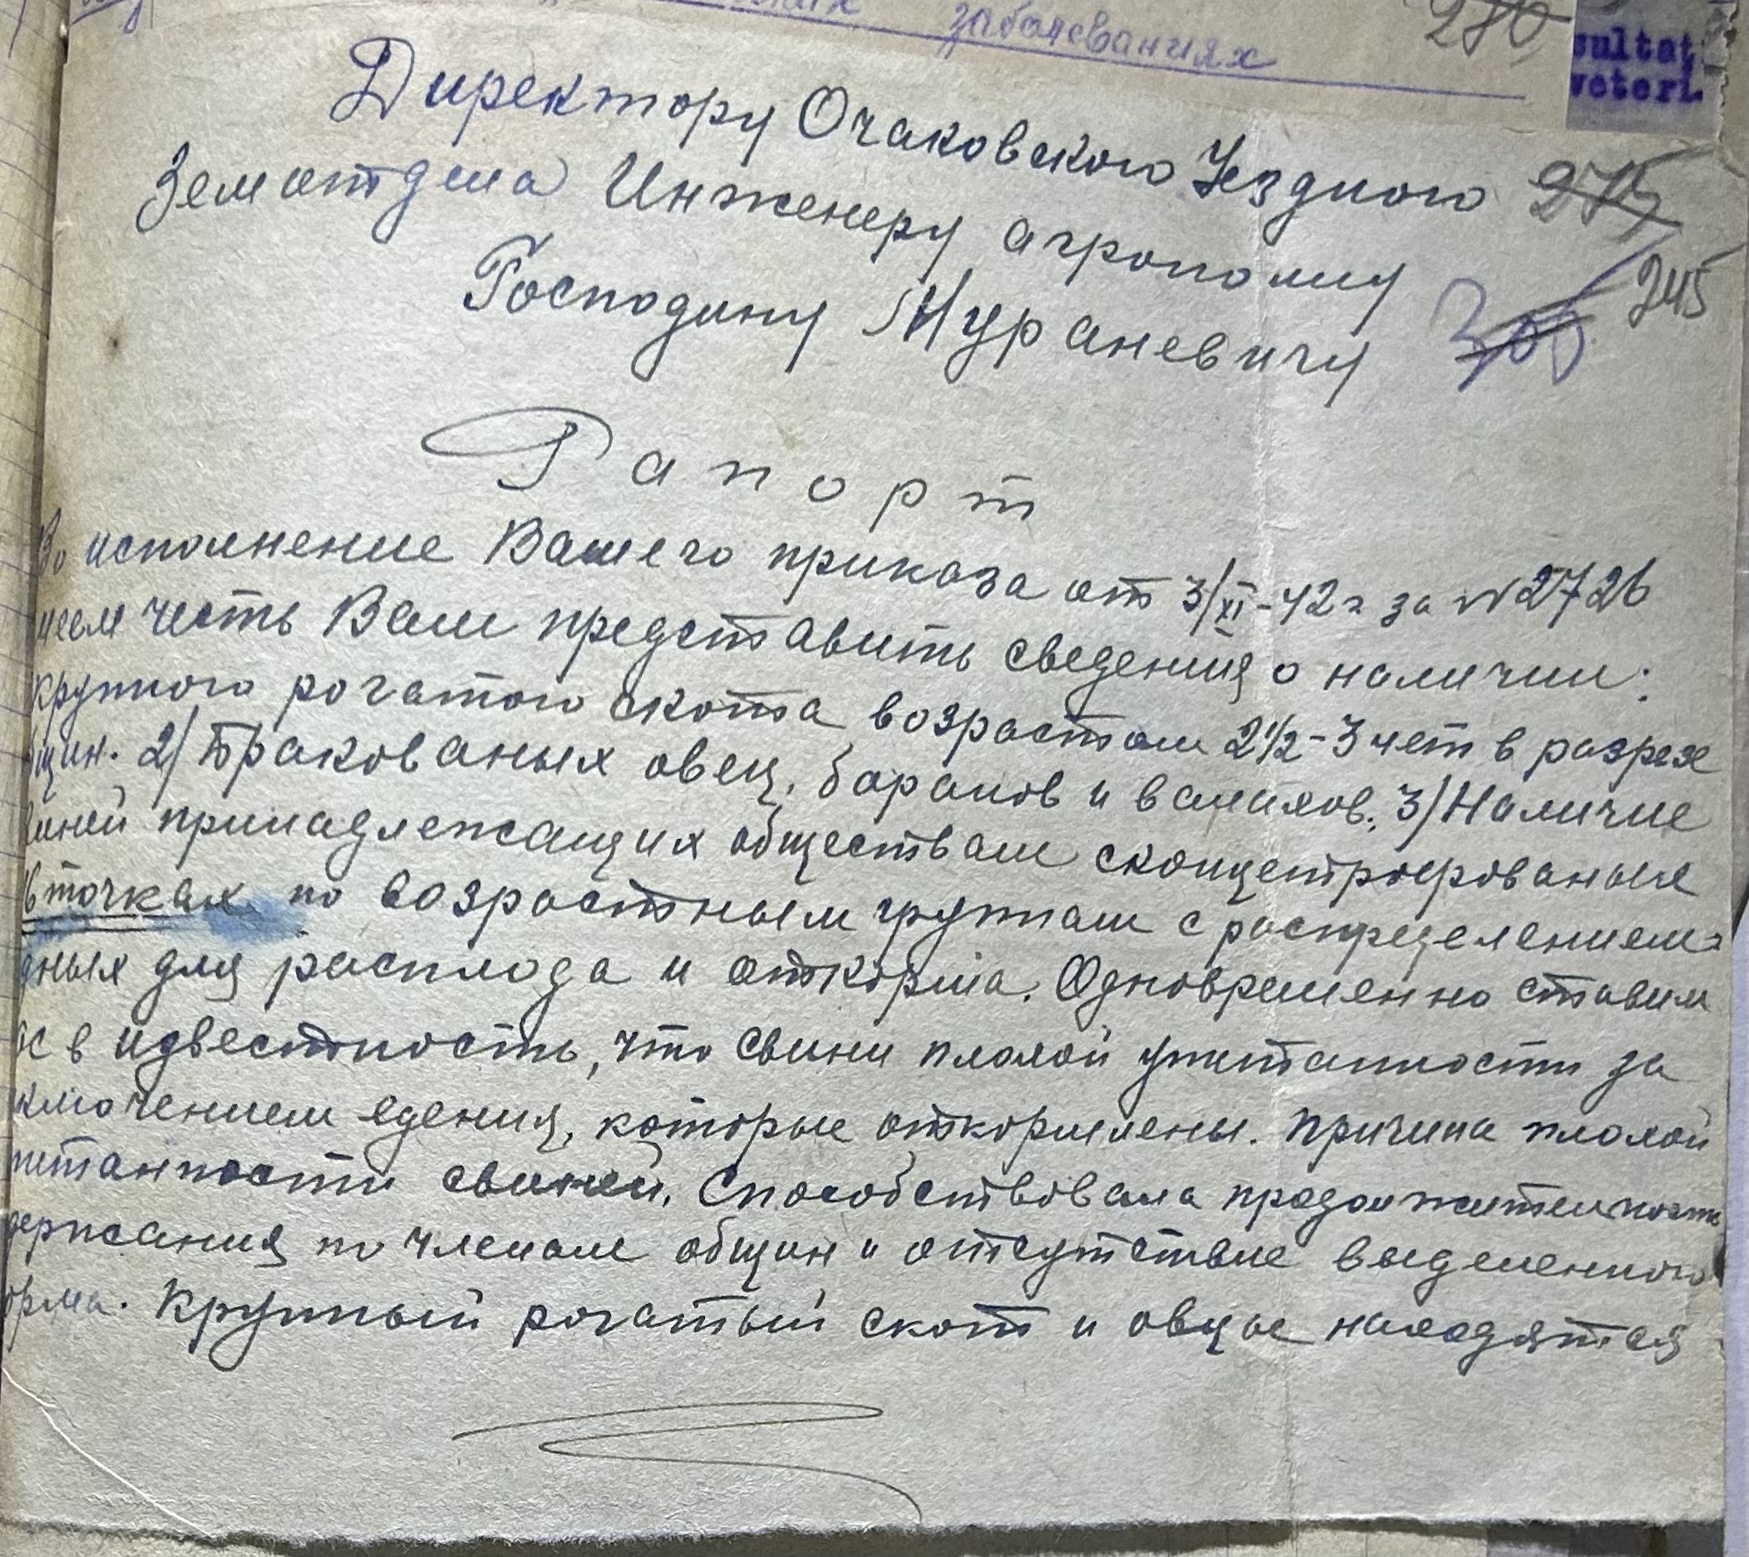 заболеваниях
280
sultat
veteri
Директору Очаковского Уездного
275
Земотдела Инженеру агроному
245
Господину Мураневичу
305
Рапорт
Во исполнение Вашего приказа от 3/XI-42 г за N 2726
меем честь Вам представить сведения о наличии:
крупного рогатого скота возрастом 2 1/2 - 3 лет в разрезе
щин. 2/ Бракованых овец, баранов и валахов. 3/ Наличие
иней принадлежащих обществам сконцетрированые
в точках по возрастным групам с распределением
дных для расплода и откорма. Одновременно ставим
ас в известность, что свини плохой упитаности за
ключением едения, которые откормлены. Причина плохой
питанности свиней. Способствовала продолжительность
держания по членам общин и отсутствие выделенного
орма. Крупный рогатый скот и овцы находятся